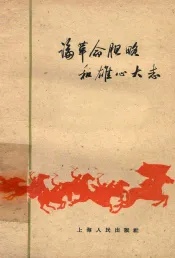 论革命胆略
和雄心大志
上海人民出版社